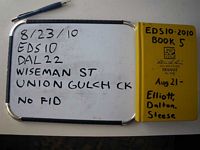 8/23/10
EDS10
DAL 22
WISEMAN ST
UNION GULCH CK
NO FID
EDS10-2010
BOOK 5
Aug 21-
Elliott,
Dalton,
Steese